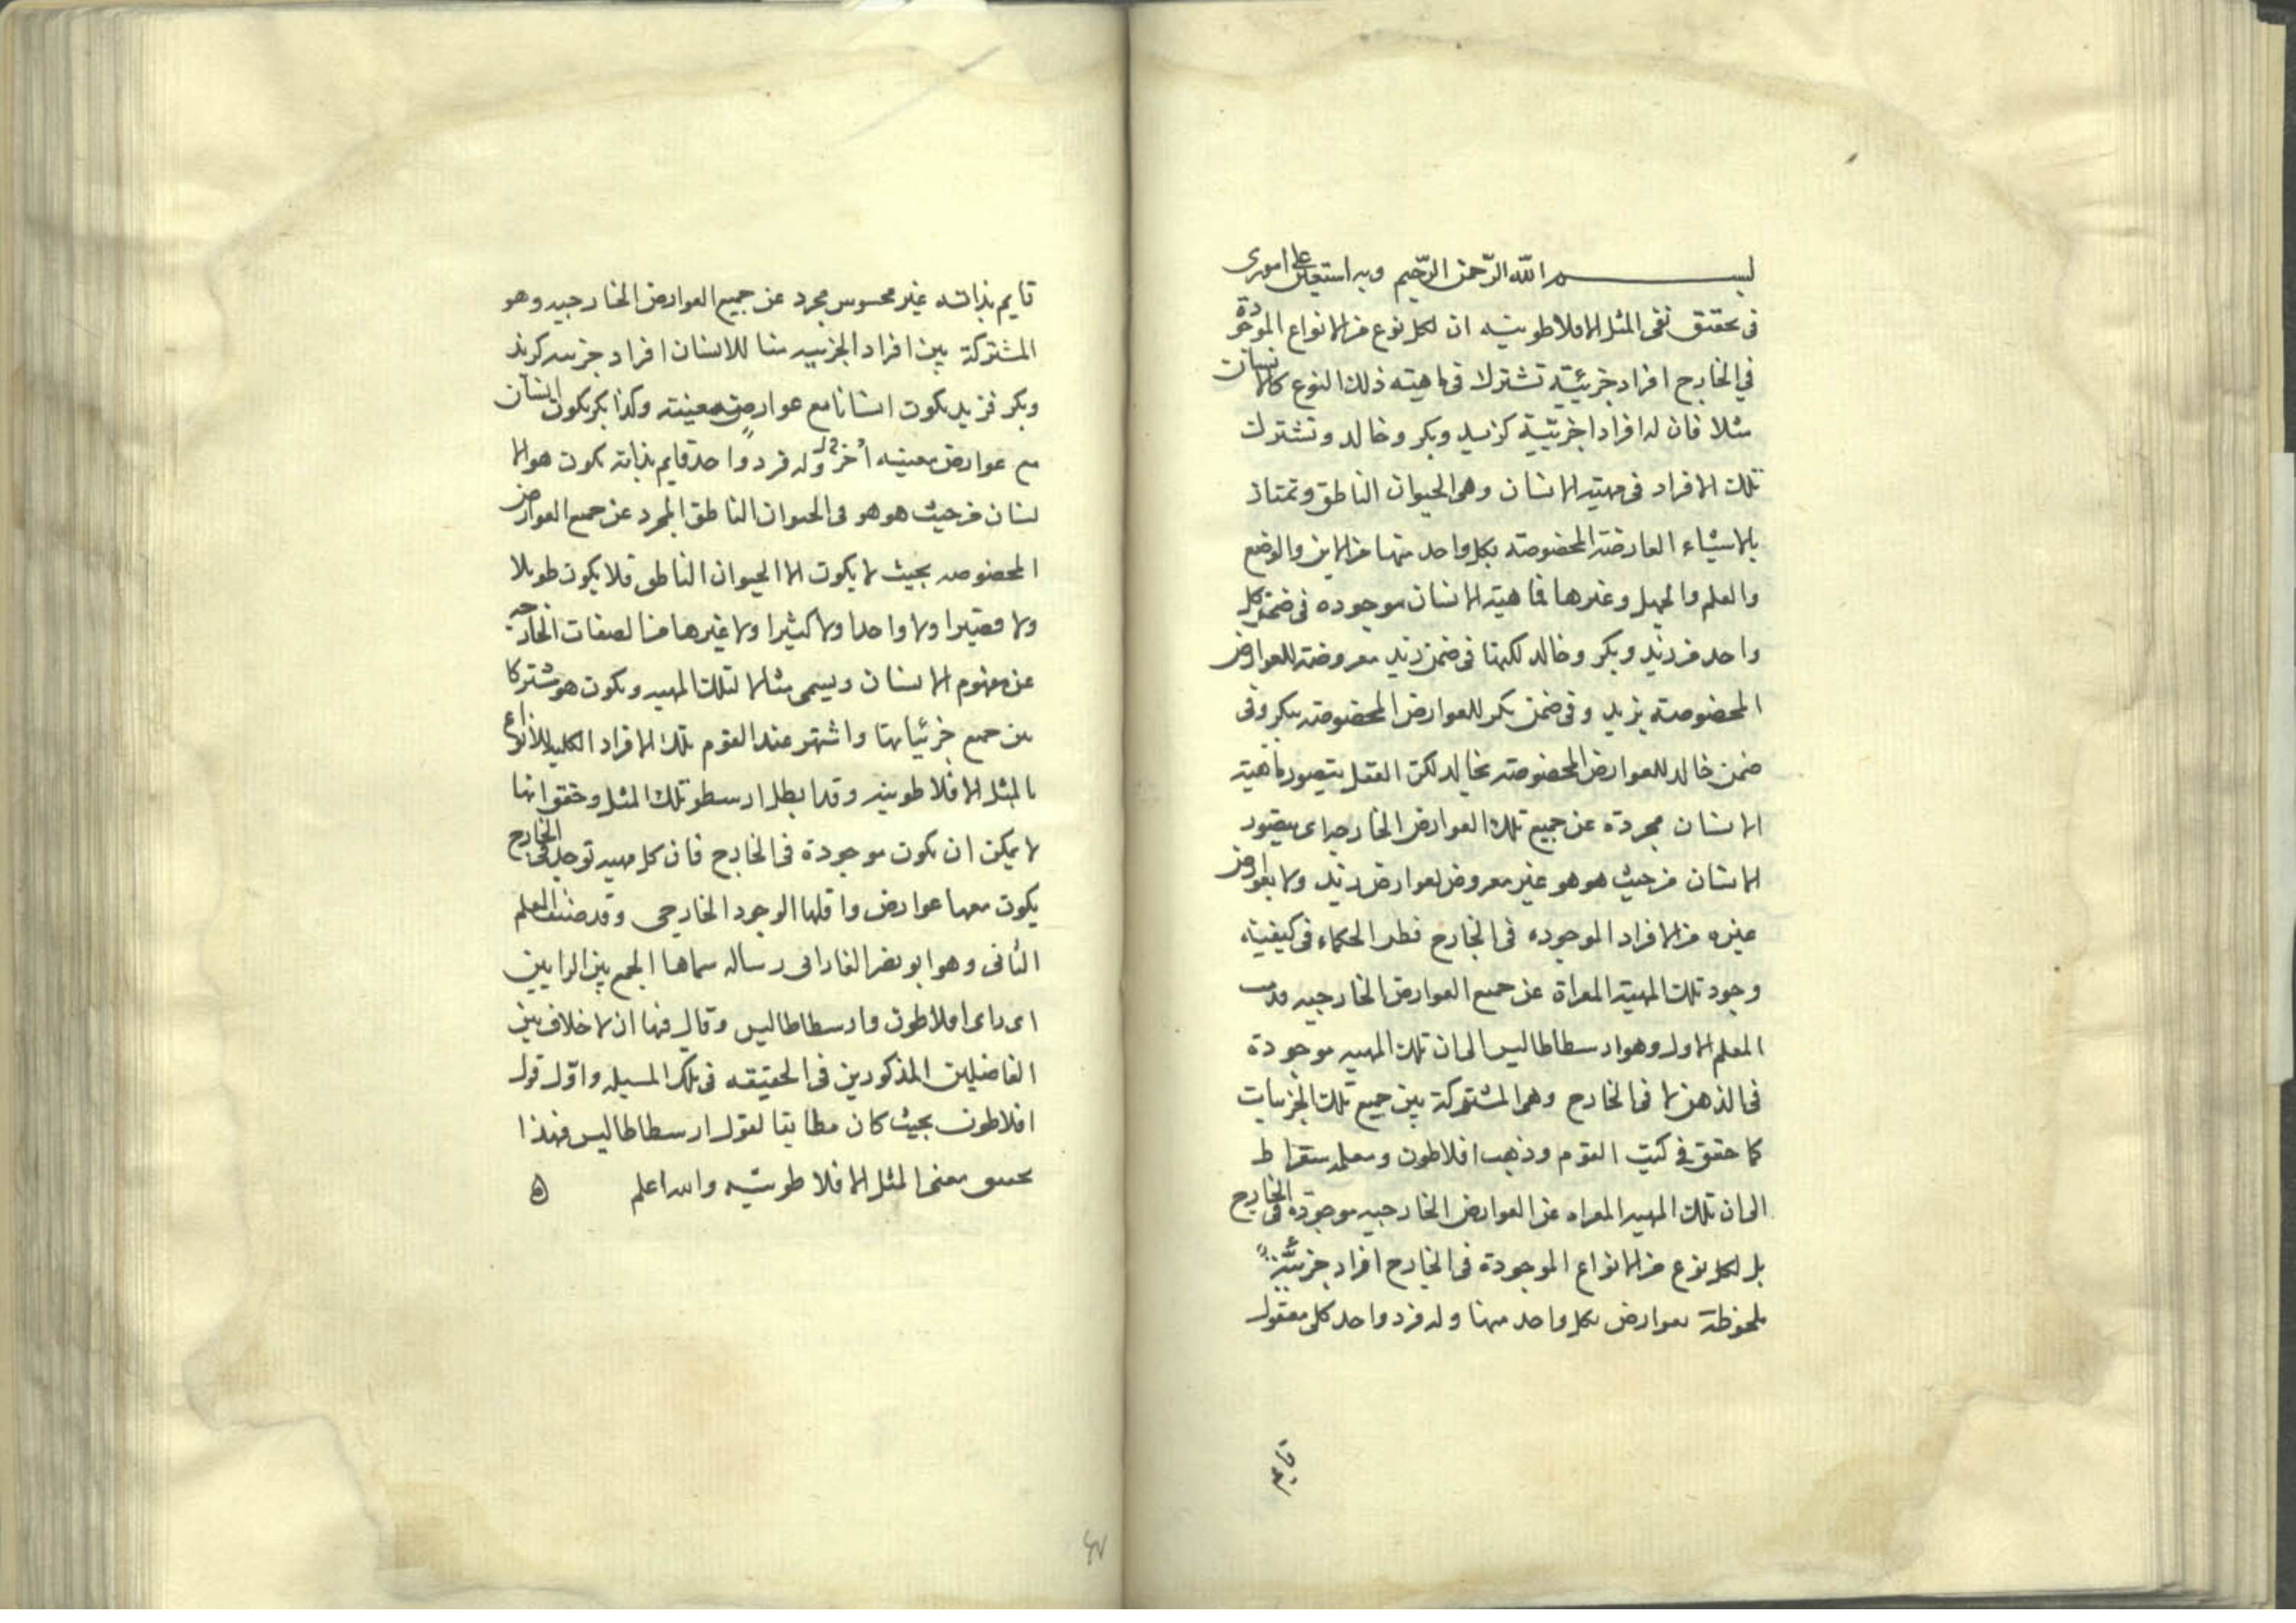 بسم الله الرّحمن الرّحيم وبه استعين على امورى
فى تحقيق نفى المثل الافلاطونيه ان لكل نوع من الانواع الموجودة
في الخارج افراد جزئيّة تشترك فى ماهيته ذلك النوع كالانسان
مثلا فان له افرادا جزئيّة كزيد وبكر وخالد وتشترك
تلك الافراد فى مهيته الانسان وهى الحيوان الناطق وتمتاز
بالاشياء العارضة المخصوصة بكل واحد منها من الاين والوضع
والعلم والجهل وغيرها فماهية الانسان موجوده فى ضمن كل
واحد من زيد وبكر وخالد لكنها فى ضمن زيد معروضة للعوارض
المخصوصة بزيد وفى ضمن بكر للعوارض المخصوصة ببكر وفى
ضمن خالد للعوارض المخصوصة بخالد لكن العقل يتصور ماهية
الانسان مجردة عن جميع تلك العوارض الخارجيه اى يتصور
الانسان من حيث هو هو غير معروض لعوارض زيد ولا بعوارض
غيره من الافراد الموجوده فى الخارج فنظر الحكماء فى كيفية
وجود تلك المهية المعراة عن جميع العوارض الخارجيه فذهب
المعلم الاول وهو ارسطاطاليس الى ان تلك المهيه موجودة
فى الذهن لا فى الخارج وهى المشتركة بين جميع تلك الجزئيات
كما حقق في كتب القوم وذهب افلاطون ومعلمه سقراط
الى ان تلك المهيه المعراه عن العوارض الخارجيه موجودة فى الخارج
بل لكل نوع من الانواع الموجودة فى الخارج افراد جزئيّة
ملحوظة بعوارض بكل واحد منها وله فرد واحد كلى معقول
قايم
قايم بذاته غير محسوس مجرد عن جميع العوارض الخارجيه وهو
المشتركة بين افراد الجزئيه مثا للانسان افراد جزئيه كزيد
وبكر فزيد يكون انسانا مع عوارض معينته وكذا بكر يكون انسان
مع عوارض معينه اخر وله فرد واحد قايم بذاته يكون هو الا
نسان من حيث هو هو فى الحيوان الناطق المجرد عن جميع العوارض
المخصوصه بحيث لا يكون الا الحيوان الناطق فلا يكون طويلا
ولا قصيرا ولا واحدا ولا كثيرا ولا غيرها من الصفات الخارجه
عن مفهوم الانسان ويسمى مثالا لتلك المهيه ويكون هو مشتركا
بين جميع جزئياتها واشتهر عند القوم تلك الافراد الكليه للانواع
بالمثل الافلاطونيه وقد ابطل ارسطو تلك المثل وحقق انها
لا يمكن ان يكون موجودة فى الخارج فان كل مهيه توجد فى الخارج
يكون معها عوارض واقلها الوجود الخارجى وقد صنف المعلم
الثانى وهو ابو نصر الفارابى رساله سماها الجمع بين الرايين
اى راى افلاطون وارسطاطاليس وقال فيها ان لا خلاف بين
الفاضلين المذكورين فى الحقيقه فى تلك المسيله واوّل قول
افلاطون بحيث كان مطابقا لقول ارسطاطاليس فهذا
تحقيق معنى المثل الافلاطونيّه والله اعلم